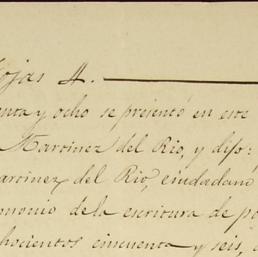 ojas 4.
enta y ocho se presentó en este
Martinez del Rio, y dijo:
artinez del Rio, ciudadano
monio de la escritura de po
hocientos cincuenta y seis,